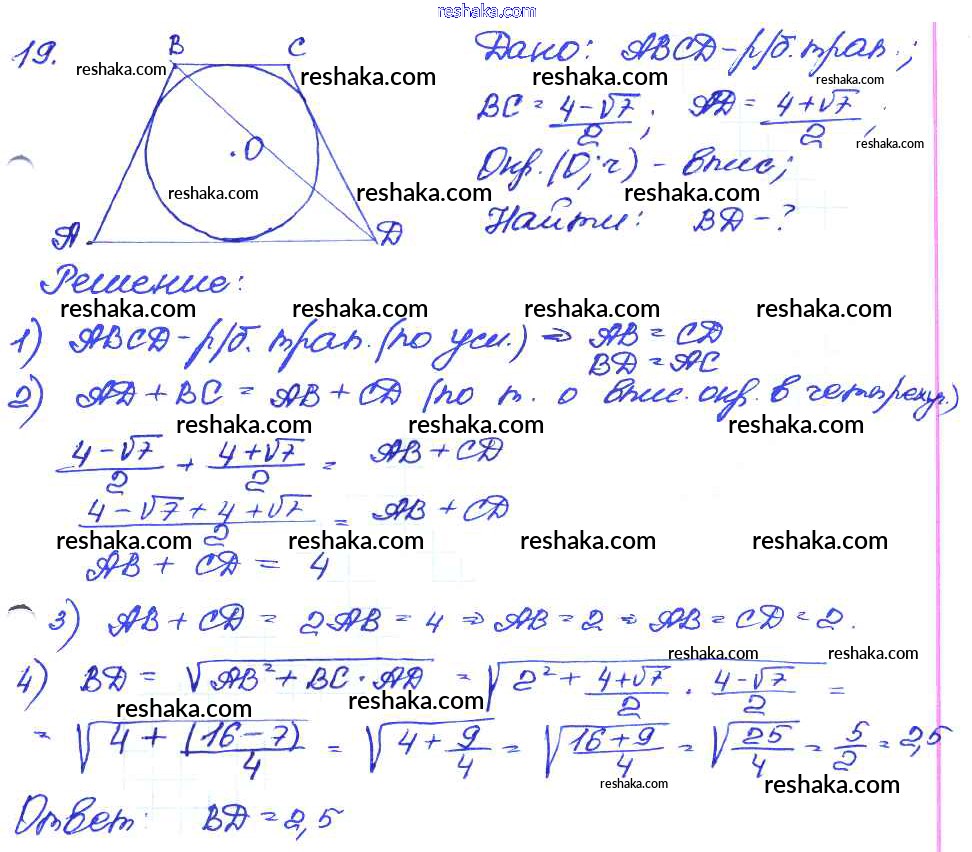 reshaka.com
19. B C Дано: ABCD – р/б. трап.;
reshaka.com reshaka.com reshaka.com reshaka.com
BC = (4-√7)/2; AD = (4+√7)/2;
reshaka.com
O Окр. (O; r) – впис;
reshaka.com reshaka.com reshaka.com
A D Найти: BD – ?
Решение:
reshaka.com reshaka.com reshaka.com reshaka.com
1) ABCD – р/б. трап. (по усл.) ⇒ AB = CD
BD = AC
2) AD + BC = AB + CD (по т. о впис. окр. в четырехуг.)
reshaka.com reshaka.com reshaka.com reshaka.com
(4-√7)/2 + (4+√7)/2 = AB + CD
(4-√7+4+√7)/2 = AB + CD
reshaka.com reshaka.com reshaka.com reshaka.com
AB + CD = 4
3) AB + CD = 2AB = 4 ⇒ AB = 2 ⇒ AB = CD = 2.
reshaka.com reshaka.com
4) BD = √(AB² + BC · AD) = √(2² + (4+√7)/2 · (4-√7)/2) =
reshaka.com reshaka.com reshaka.com
= √(4 + (16-7)/4) = √(4 + 9/4) = √((16+9)/4) = √(25/4) = 5/2 = 2,5
reshaka.com reshaka.com
Ответ: BD = 2,5